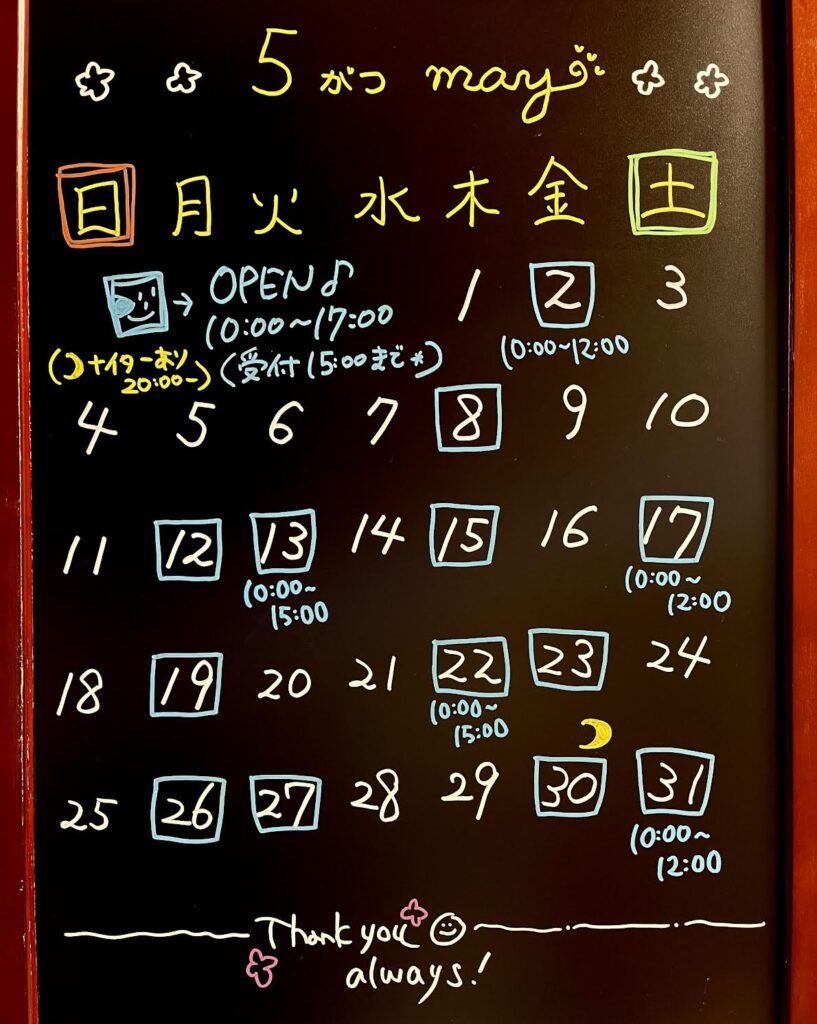 5がつ may
日 月 火 水 木 金 土
→ OPEN♪
10:00～17:00
(ナイターあり 20:00ー)
(受付15:00まで*)
1 2 3
10:00～12:00
4 5 6 7 8 9 10
11 12 13 14 15 16 17
10:00～
15:00
10:00～
12:00
18 19 20 21 22 23 24
10:00～
15:00
25 26 27 28 29 30 31
10:00～
12:00
Thank you
always!